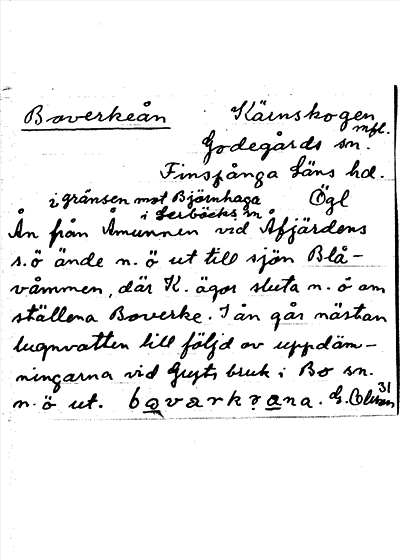 Boverkeån Kärnskogen
mfl.
Godegårds sn.
Finspånga Läns hd.
i gränsen mot Björnhaga Ögl
i Lerbäcks sn
Ån från Åmunnen vid Åfjärdens
s.ö ände n.ö ut till sjön Blå-
våmmen, där K. ägor sluta n.ö om
ställena Boverke. I ån går nästan
lugnvatten till följd av uppdäm-
ningarna vid Gryts bruk i Bo sn.
n.ö ut. 31